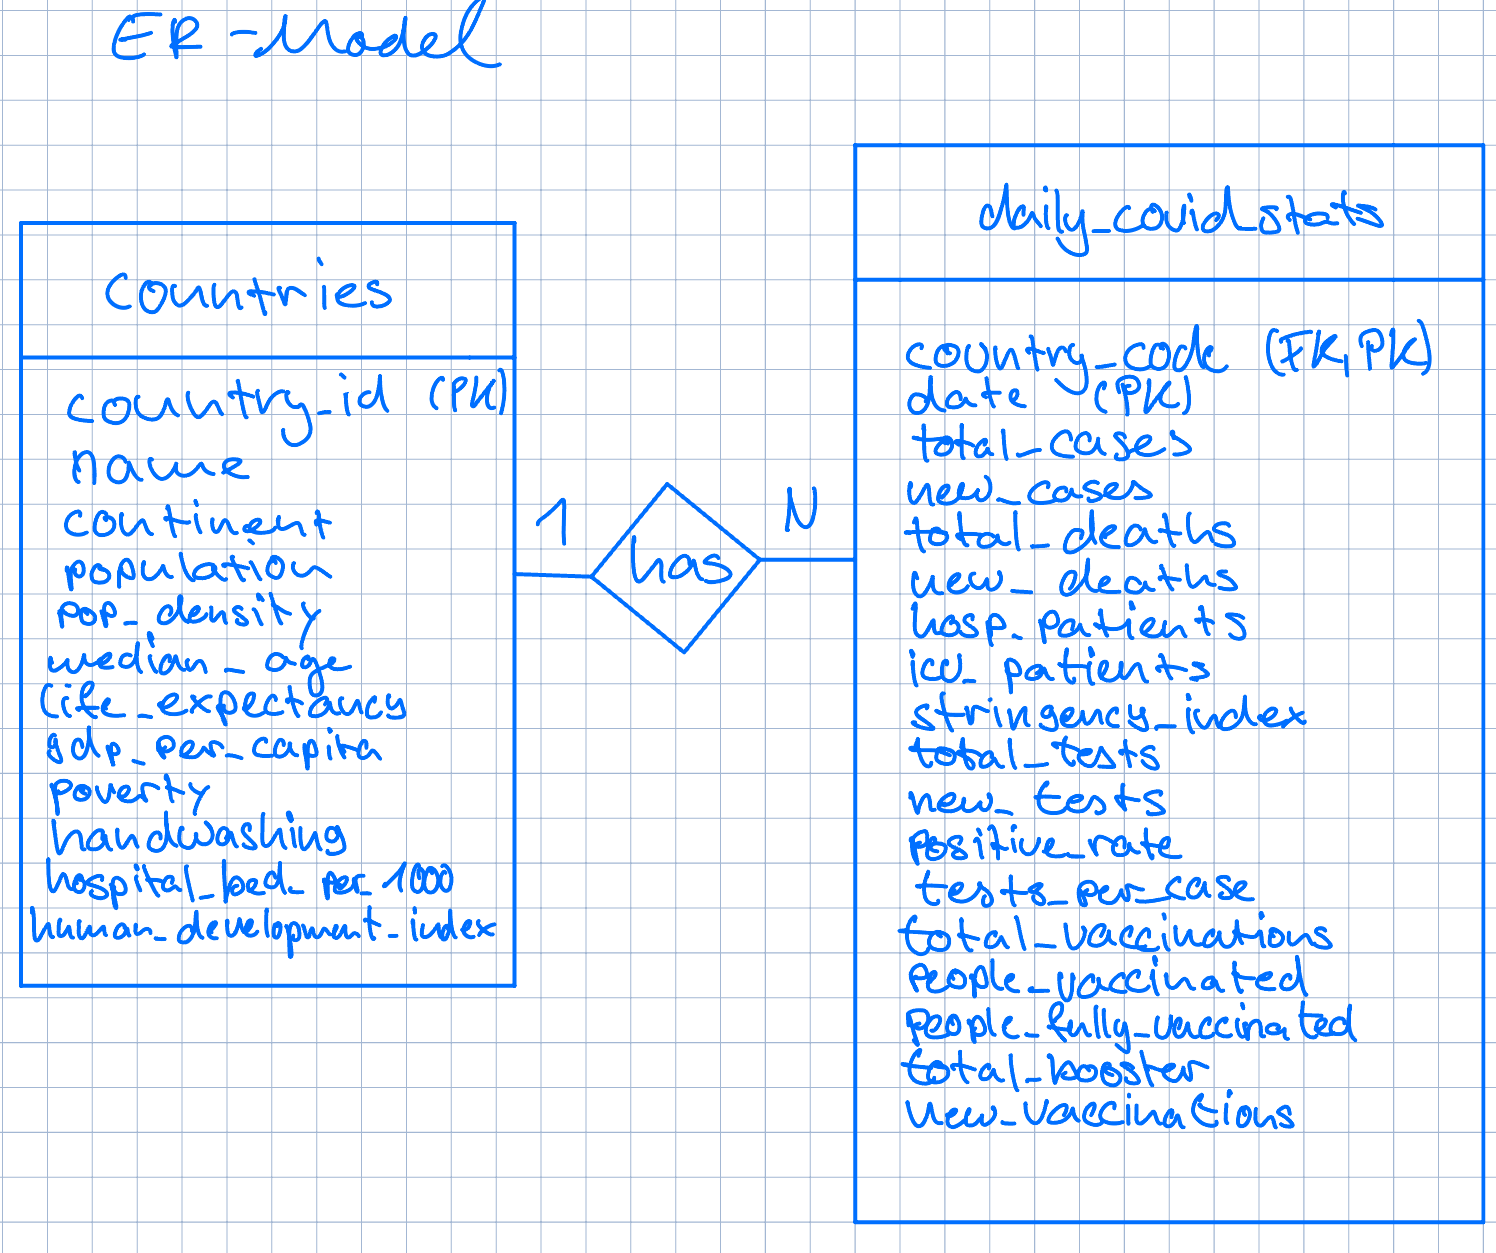 ER-Model
countries
country_id (PK)
name
continent
population
pop_density
median_age
life_expectancy
gdp_per_capita
poverty
handwashing
hospital_bed_per_1000
human_development_index
1
has
N
daily_covid_stats
country_code (FK, PK)
date (PK)
total_cases
new_cases
total_deaths
new_deaths
hosp_patients
icu_patients
stringency_index
total_tests
new_tests
positive_rate
tests_per_case
total_vaccinations
people_vaccinated
people_fully_vaccinated
total_booster
new_vaccinations